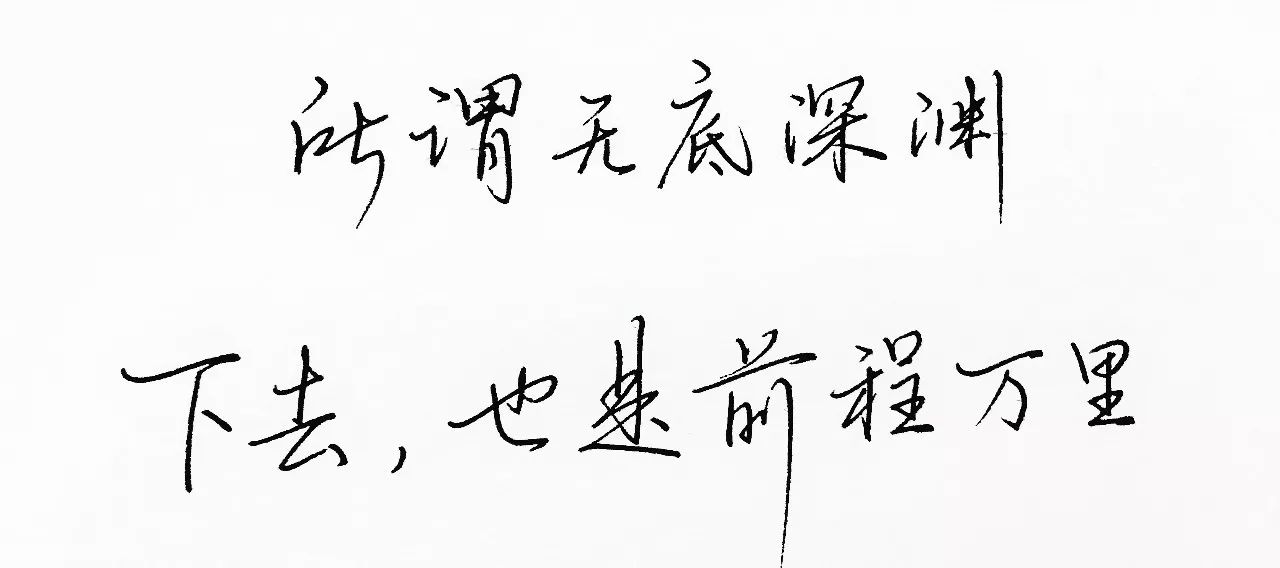 所谓无底深渊
下去,也是前程万里